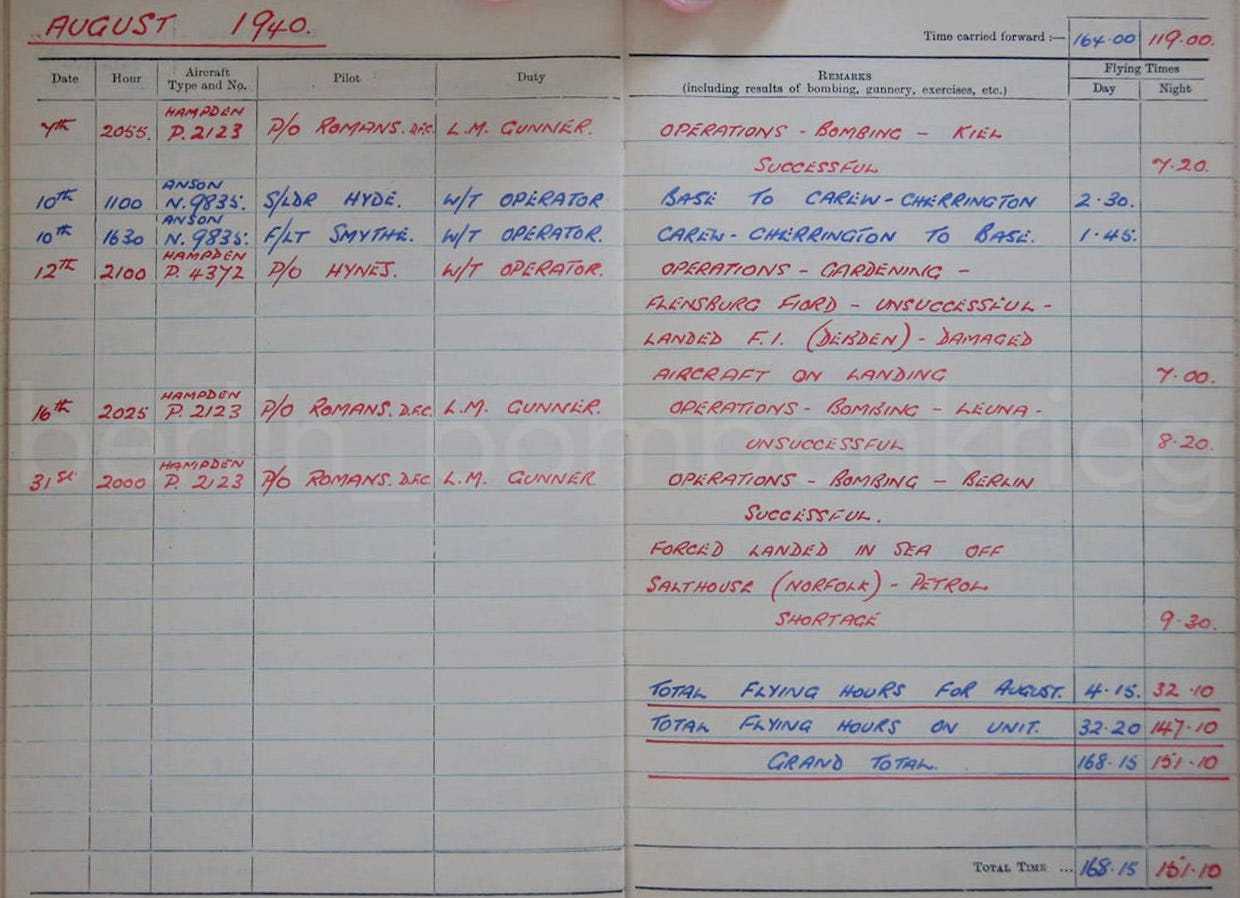 AUGUST 1940.
Time carried forward :— 164.00 119.00.
Date Hour Aircraft Type and No. Pilot Duty REMARKS (including results of bombing, gunnery, exercises, etc.) Flying Times Day Night
HAMPDEN
7th 2055. P. 2123 P/O ROMANS. DFC. L.M. GUNNER. OPERATIONS - BOMBING - KIEL
SUCCESSFUL 7.20.
ANSON
10th 1100 N. 9835. S/LDR HYDE. W/T OPERATOR BASE TO CAREW-CHERRINGTON 2.30.
ANSON
10th 1630 N. 9835. F/LT SMYTHE. W/T OPERATOR. CAREW-CHERRINGTON TO BASE. 1.45.
HAMPDEN
12th 2100 P. 4372 P/O HYNES. W/T OPERATOR. OPERATIONS - GARDENING -
FLENSBURG FIORD - UNSUCCESSFUL -
LANDED F.I. (DEBDEN) - DAMAGED
AIRCRAFT ON LANDING 7.00.
HAMPDEN
16th 2025 P. 2123 P/O ROMANS. D.F.C. L.M. GUNNER. OPERATIONS - BOMBING - LEUNA -
UNSUCCESSFUL 8.20.
HAMPDEN
31st 2000 P. 2123 P/O ROMANS. D.F.C. L.M. GUNNER OPERATIONS - BOMBING - BERLIN
SUCCESSFUL.
FORCED LANDED IN SEA OFF
SALTHOUSE (NORFOLK) - PETROL
SHORTAGE 9.30.
TOTAL FLYING HOURS FOR AUGUST. 4.15. 32.10
TOTAL FLYING HOURS ON UNIT. 32.20 147.10
GRAND TOTAL. 168.15 151.10
TOTAL TIME ... 168.15 151.10
berlin_bombenkrieg